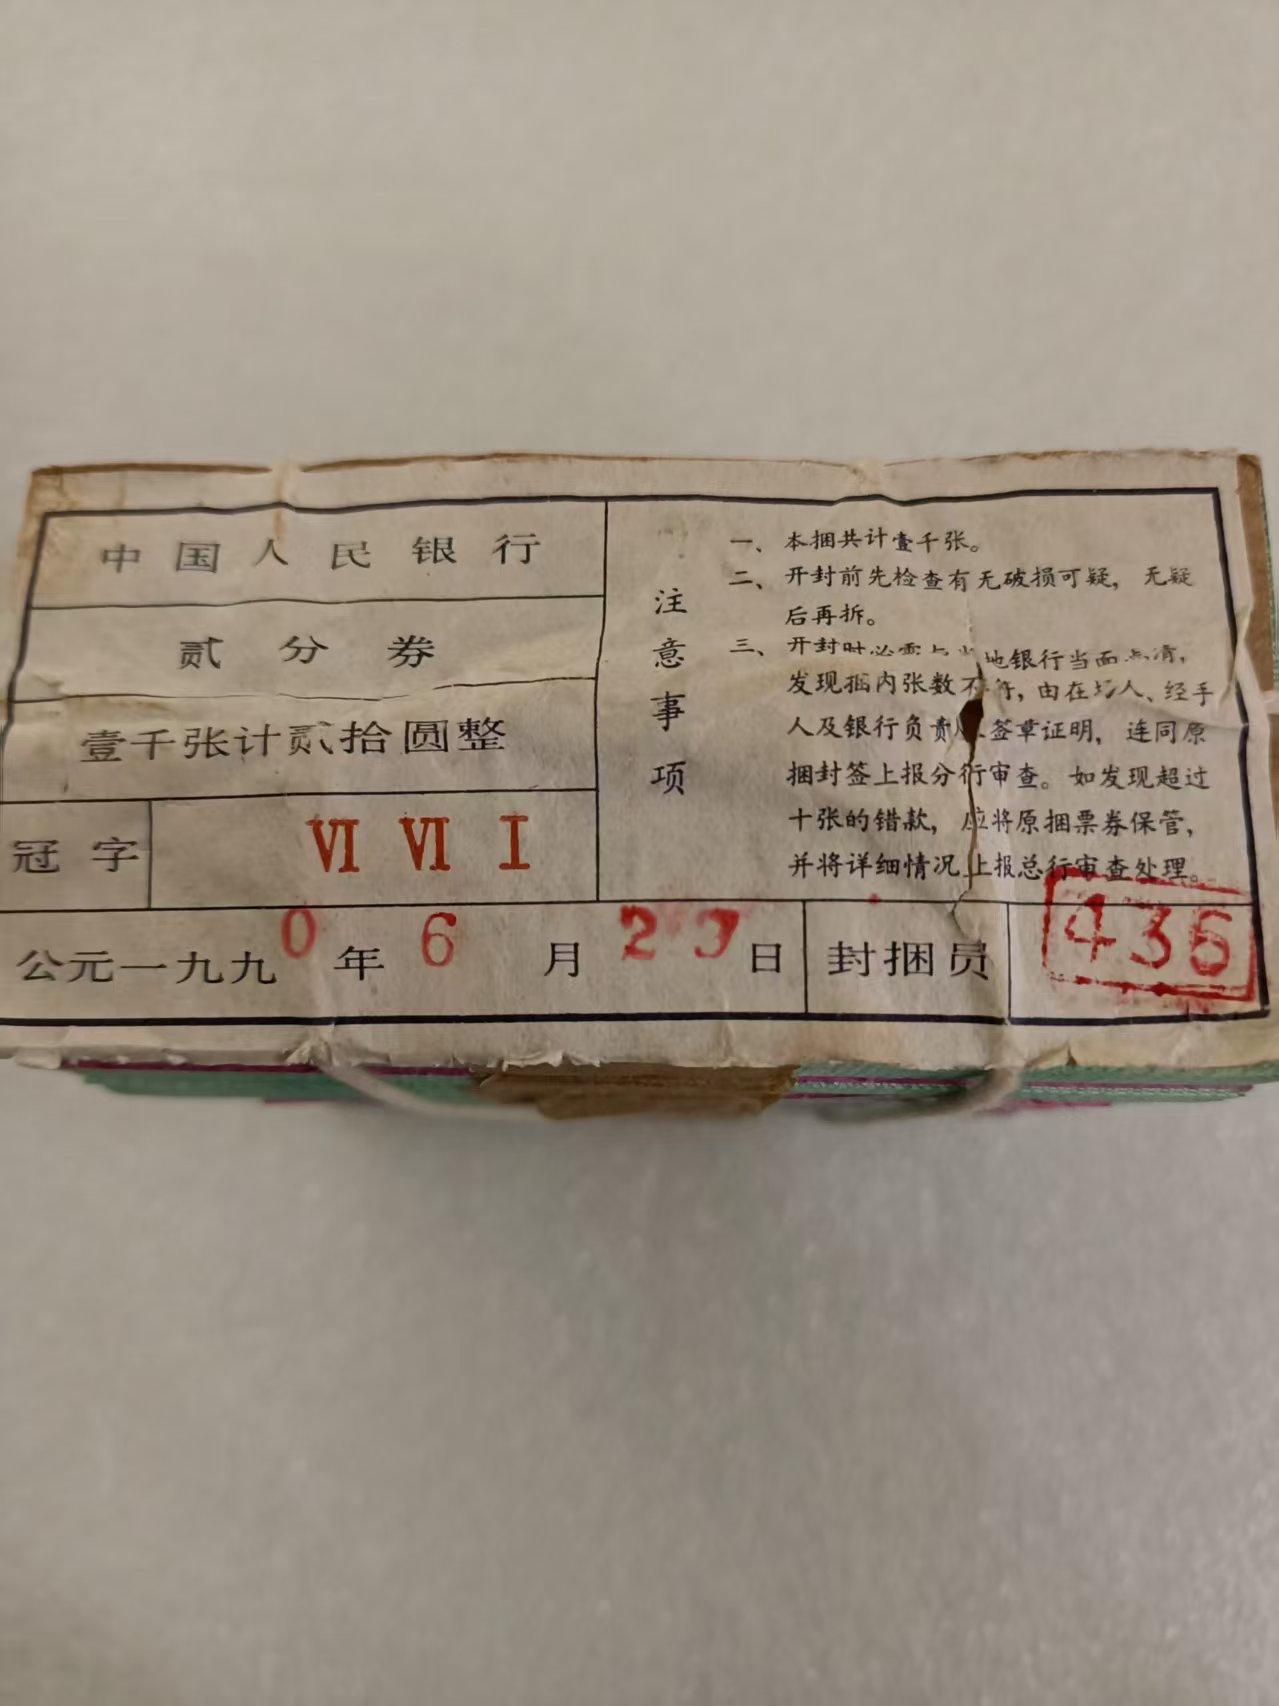 中国人民银行
贰分券
壹千张计贰拾圆整
冠字 Ⅵ Ⅵ Ⅰ
注意事项
一、本捆共计壹千张。
二、开封前先检查有无破损可疑，无疑
后再拆。
三、开封时必需与当地银行当面点清，
发现捆内张数不符，由在场人、经手
人及银行负责人签章证明，连同原
捆封签上报分行审查。如发现超过
十张的错款，应将原捆票券保管，
并将详细情况上报总行审查处理。
公元一九九0年6月2日 封捆员 436